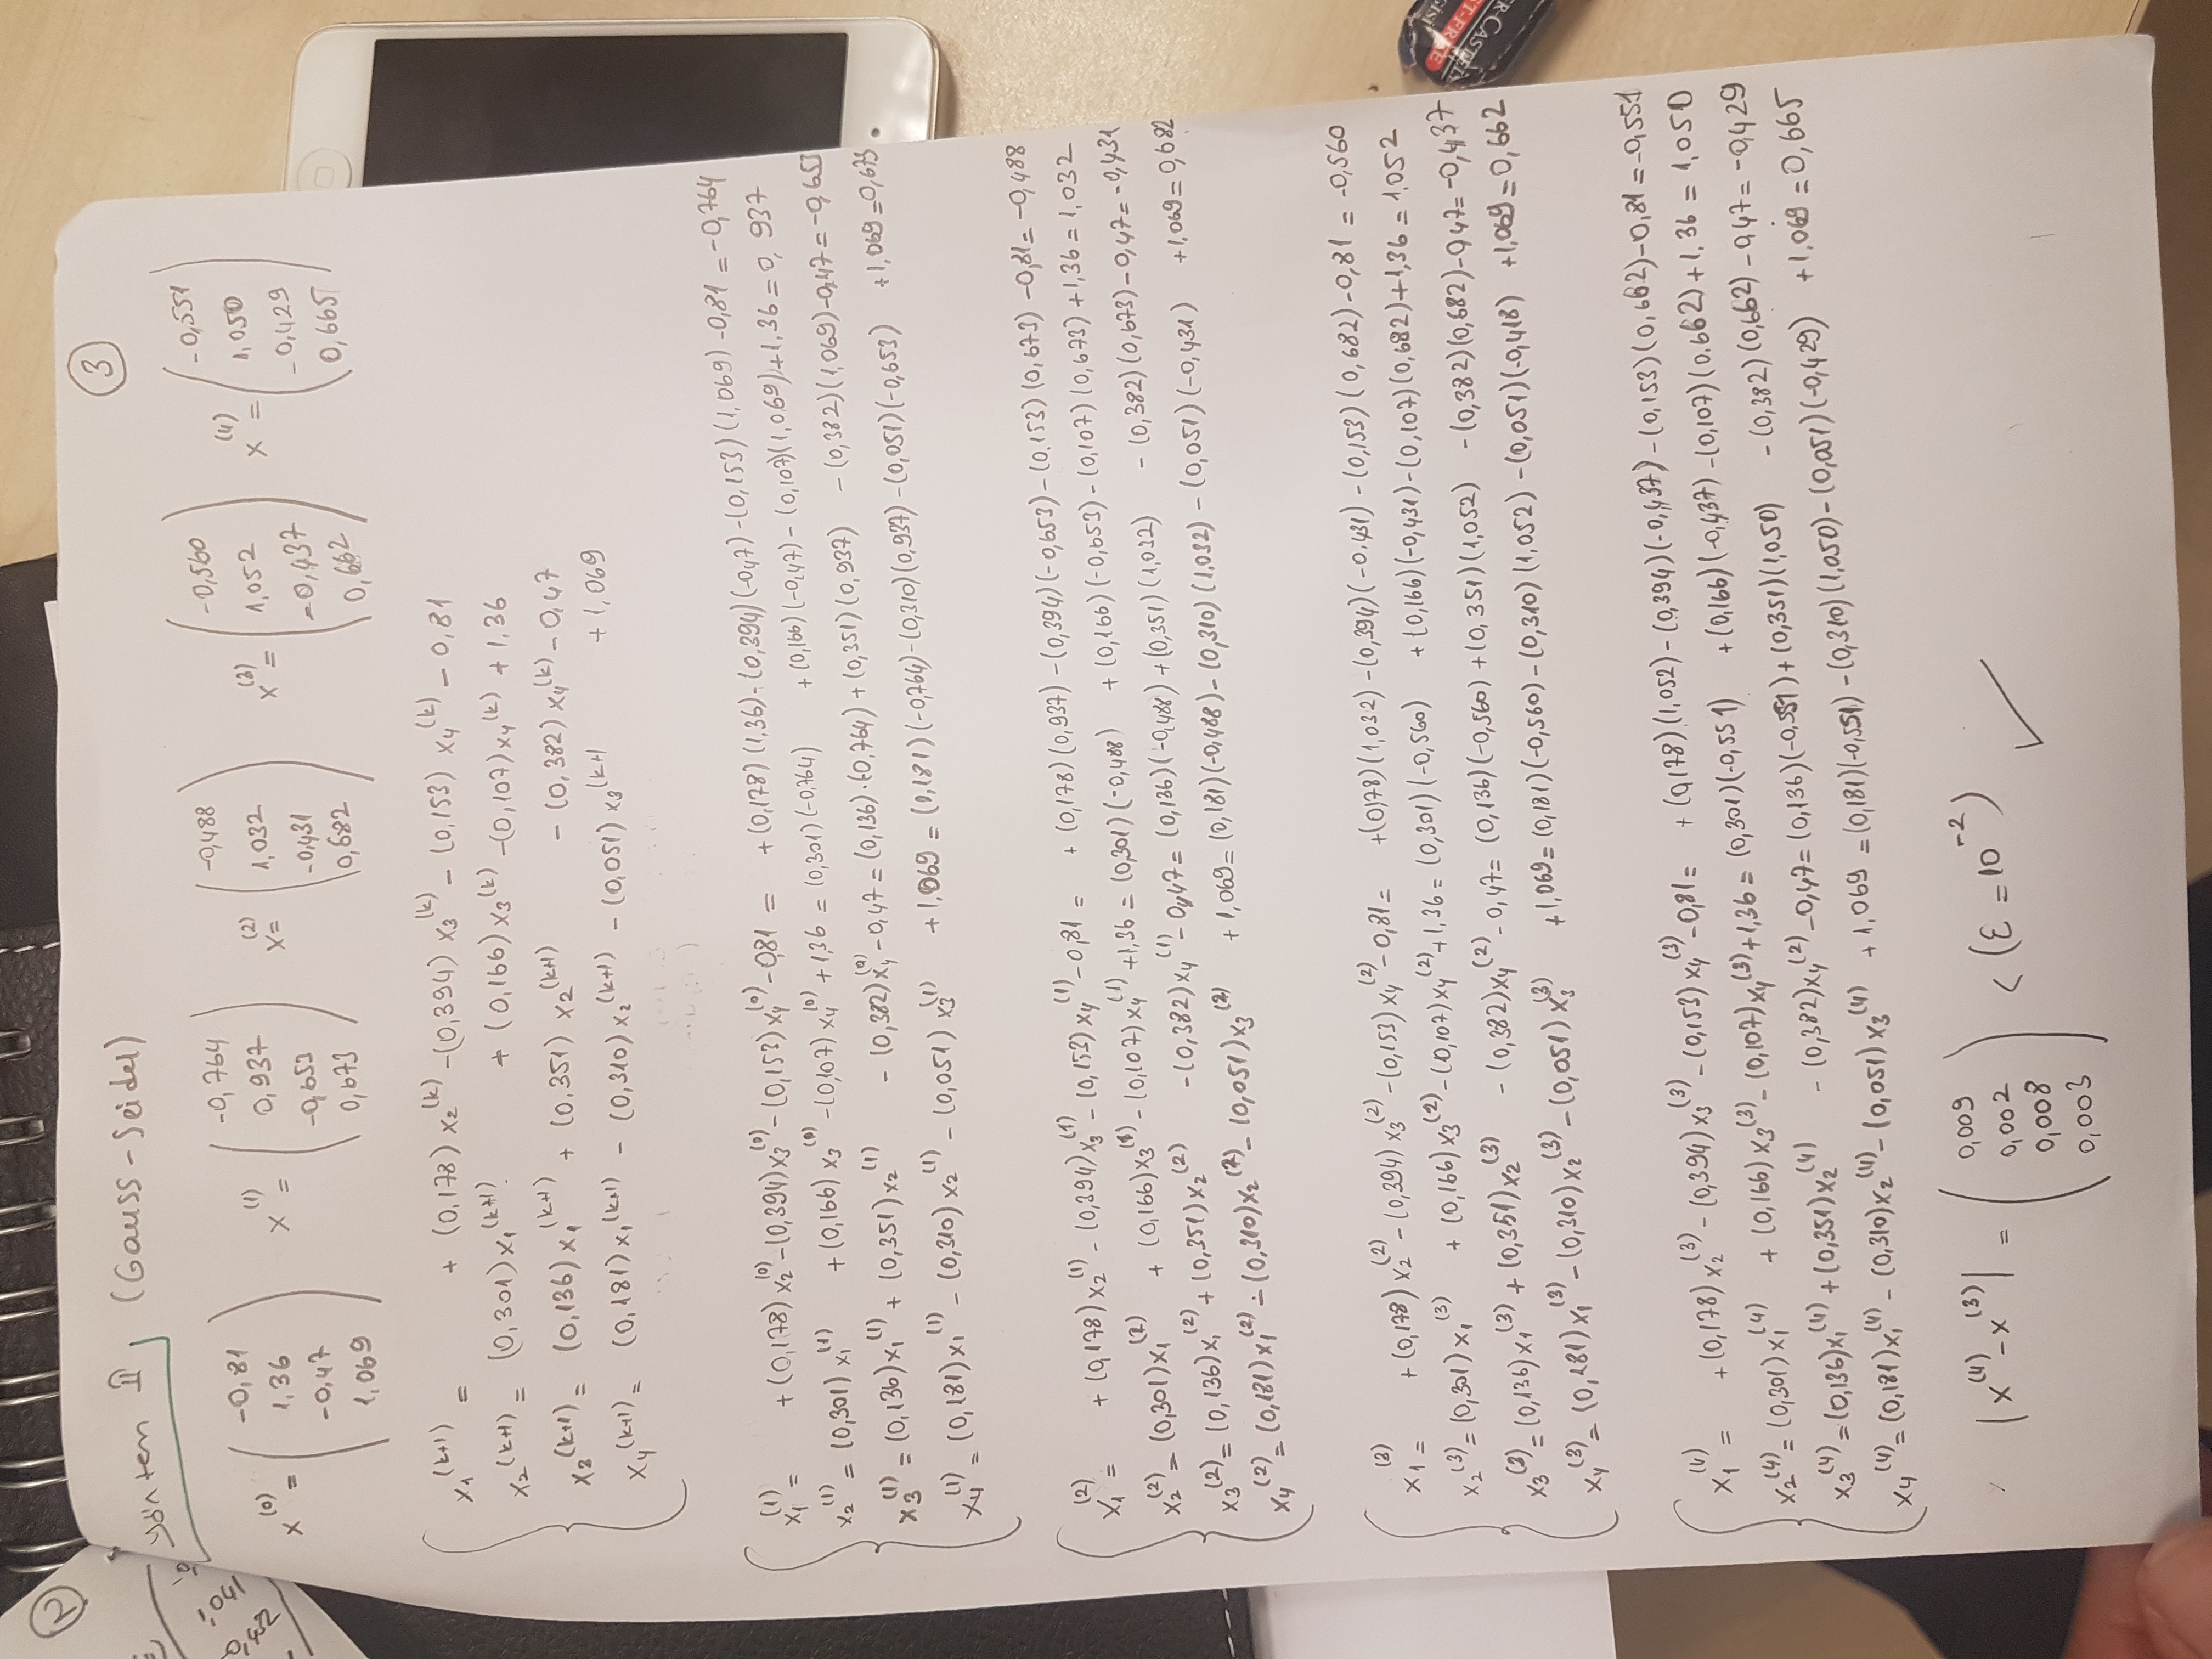 2
1,041
-0,432
3
Yöntem II (Gauss-Seidel)
x^(0) = (-0,81 1,36 -0,47 1,069) x^(1) = (-0,764 0,937 -0,653 0,673) x^(2) = (-0,488 1,032 -0,431 0,682) x^(3) = (-0,560 1,052 -0,437 0,662) x^(4) = (-0,551 1,050 -0,429 0,665)
x1^(k+1) = + (0,178) x2^(k) - (0,394) x3^(k) - (0,153) x4^(k) - 0,81
x2^(k+1) = (0,301) x1^(k+1) + (0,166) x3^(k) - (0,107) x4^(k) + 1,36
x3^(k+1) = (0,136) x1^(k+1) + (0,351) x2^(k+1) - (0,382) x4^(k) - 0,47
x4^(k+1) = (0,181) x1^(k+1) - (0,310) x2^(k+1) - (0,051) x3^(k+1 + 1,069
x1^(1) = + (0,178) x2^(0) - (0,394) x3^(0) - (0,153) x4^(0) - 0,81 = + (0,178) (1,36) - (0,394) (-0,47) - (0,153) (1,069) - 0,81 = -0,764
x2^(1) = (0,301) x1^(1) + (0,166) x3^(0) - (0,107) x4^(0) + 1,36 = (0,301) (-0,764) + (0,166) (-0,47) - (0,107) (1,069) + 1,36 = 0,937
x3^(1) = (0,136) x1^(1) + (0,351) x2^(1) - (0,382) x4^(0) - 0,47 = (0,136) . (-0,764) + (0,351) (0,937) - (0,382) (1,069) - 0,47 = -0,653
x4^(1) = (0,181) x1^(1) - (0,310) x2^(1) - (0,051) x3^(1) + 1,069 = (0,181) (-0,764) - (0,310) (0,937) - (0,051) (-0,653) + 1,069 = 0,673
x1^(2) = + (0,178) x2^(1) - (0,394) x3^(1) - (0,153) x4^(1) - 0,81 = + (0,178) (0,937) - (0,394) (-0,653) - (0,153) (0,673) - 0,81 = -0,488
x2^(2) = (0,301) x1^(2) + (0,166) x3^(1) - (0,107) x4^(1) + 1,36 = (0,301) (-0,488) + (0,166) (-0,653) - (0,107) (0,673) + 1,36 = 1,032
x3^(2) = (0,136) x1^(2) + (0,351) x2^(2) - (0,382) x4^(1) - 0,47 = (0,136) (-0,488) + (0,351) (1,032) - (0,382) (0,673) - 0,47 = -0,431
x4^(2) = (0,181) x1^(2) - (0,310) x2^(2) - (0,051) x3^(2) + 1,069 = (0,181) (-0,488) - (0,310) (1,032) - (0,051) (-0,431) + 1,069 = 0,682
x1^(3) = + (0,178) x2^(2) - (0,394) x3^(2) - (0,153) x4^(2) - 0,81 = + (0,178) (1,032) - (0,394) (-0,431) - (0,153) (0,682) - 0,81 = -0,560
x2^(3) = (0,301) x1^(3) + (0,166) x3^(2) - (0,107) x4^(2) + 1,36 = (0,301) (-0,560) + (0,166) (-0,431) - (0,107) (0,682) + 1,36 = 1,052
x3^(3) = (0,136) x1^(3) + (0,351) x2^(3) - (0,382) x4^(2) - 0,47 = (0,136) (-0,560) + (0,351) (1,052) - (0,382) (0,682) - 0,47 = -0,437
x4^(3) = (0,181) x1^(3) - (0,310) x2^(3) - (0,051) x3^(3) + 1,069 = (0,181) (-0,560) - (0,310) (1,052) - (0,051) (-0,418) + 1,069 = 0,662
x1^(4) = + (0,178) x2^(3) - (0,394) x3^(3) - (0,153) x4^(3) - 0,81 = + (0,178) (1,052) - (0,394) (-0,437) - (0,153) (0,662) - 0,81 = -0,551
x2^(4) = (0,301) x1^(4) + (0,166) x3^(3) - (0,107) x4^(3) + 1,36 = (0,301) (-0,551) + (0,166) (-0,437) - (0,107) (0,662) + 1,36 = 1,050
x3^(4) = (0,136) x1^(4) + (0,351) x2^(4) - (0,382) x4^(2) - 0,47 = (0,136) (-0,551) + (0,351) (1,050) - (0,382) (0,662) - 0,47 = -0,429
x4^(4) = (0,181) x1^(4) - (0,310) x2^(4) - (0,051) x3^(4) + 1,069 = (0,181) (-0,551) - (0,310) (1,050) - (0,051) (-0,429) + 1,069 = 0,665
|x^(4) - x^(3)| = (0,009 0,002 0,008 0,003) < (ε = 10^-2) ✓